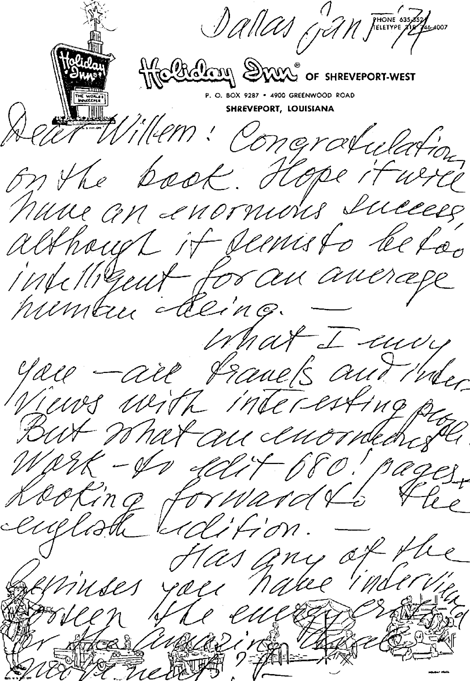 Dallas Jan 5 '74
PHONE 635-3521
TELETYPE 318 746-4007
Holiday Inn®
Holiday Inn® OF SHREVEPORT-WEST
THE WORLD'S INNKEEPER
P. O. BOX 9287 • 4900 GREENWOOD ROAD
SHREVEPORT, LOUISIANA
Dear Willem: Congratulation
on the book. Hope it will
have an enormous success,
although it seems to be too
intelligent for an average
human being. —
What I envy
you – are travels and inter-
views with interesting people.
But what an enormous
work – to edit 680! pages.
Looking forward to the
english edition. —
Has any of the
geniuses you have interview
the
or the amazing
movements?